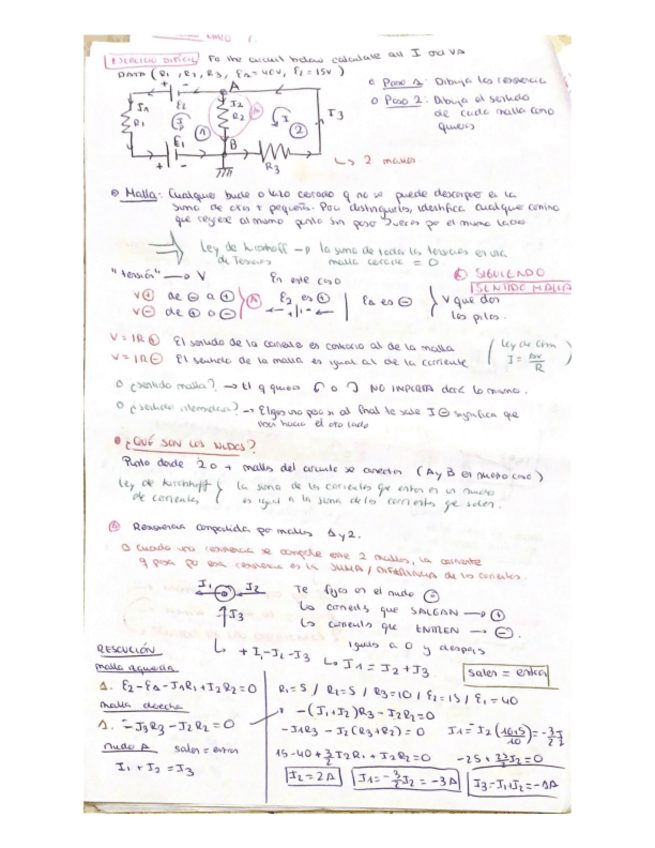 EJERCICIO DIFÍCIL For the circuit below calculate all I and VA
DATA (R1, R2, R3, E1=40V, E2=15V)
+ - A
I1 E2 I2 R2 I3
R1 1 2
E1 B
+ - R3
↳ 2 mallas
o Paso 1: Dibuja las resistencia
o Paso 2: Dibuja el sentido
de cada malla como
quieras
Malla: Cualquier bucle o lazo cerrado q no se puede
suma de otros + pequeños. Para distinguirlos, identifica cualquier camino
que regrese al mismo punto sin pasar 2 veces por el mismo lado
Ley de Kirchhoff → la suma de todas las tensiones en una
de Tensiones malla cerrada = 0
"tensión" → V En este caso SIGUIENDO
SENTIDO MALLA
V⊕ de ⊖ a ⊕ E2 es ⊕ E1 es ⊖ V que dan
V⊖ de ⊕ a ⊖ las pilas.
V = IR ⊕ El sentido de la corriente es contrario al de la malla (Ley de Ohm
V = IR ⊖ El sentido de la malla es igual al de la corriente I = ΔV/R)
o ¿sentido malla? → El q quieras o NO IMPORTA dará lo mismo.
o ¿sentido intensidad? → Eliges uno pero si al final te sale I ⊖ significa que
van hacia el otro lado
¿QUÉ SON LOS NUDOS?
Punto donde 2 o + mallas del circuito se conectan (A y B en nuestro caso)
Ley de Kirchhoff } la suma de las corrientes que entran en un nudo
de corrientes es igual a la suma de las corrientes que salen.
Resistencia compartida por mallas 1 y 2.
o Cuando una resistencia se comparte entre 2 mallas, la corriente
q pasa por esa resistencia es la SUMA / DIFERENCIA de las corrientes.
I1 I2 Te fijas en el nudo
↑I3 Las corrientes que SALGAN → ⊕
Las corrientes que ENTREN → ⊖.
igualas a 0 y despejas
↳ + I1-I2-I3 ↳ I1 = I2+I3 salen = entran
RESOLUCIÓN
malla izquierda
1. E2-E1-I1R1+I2R2=0
malla derecha
1. -I3R3-I2R2=0
nudo A salen = entran
I1 + I2 = I3
R1=5 / R2=5 / R3=10 / E2=15 / E1=40
-(I1+I2)R3-I2R2=0
-I1R3-I2(R3+R2)=0 I1=-I2(10+5/10)=-3/2 I2
15-40+3/2 I2R1+I2R2=0 -25+25/2 I2=0
I2=2A I1=-3/2 I2=-3A I3=I1+I2=-1A